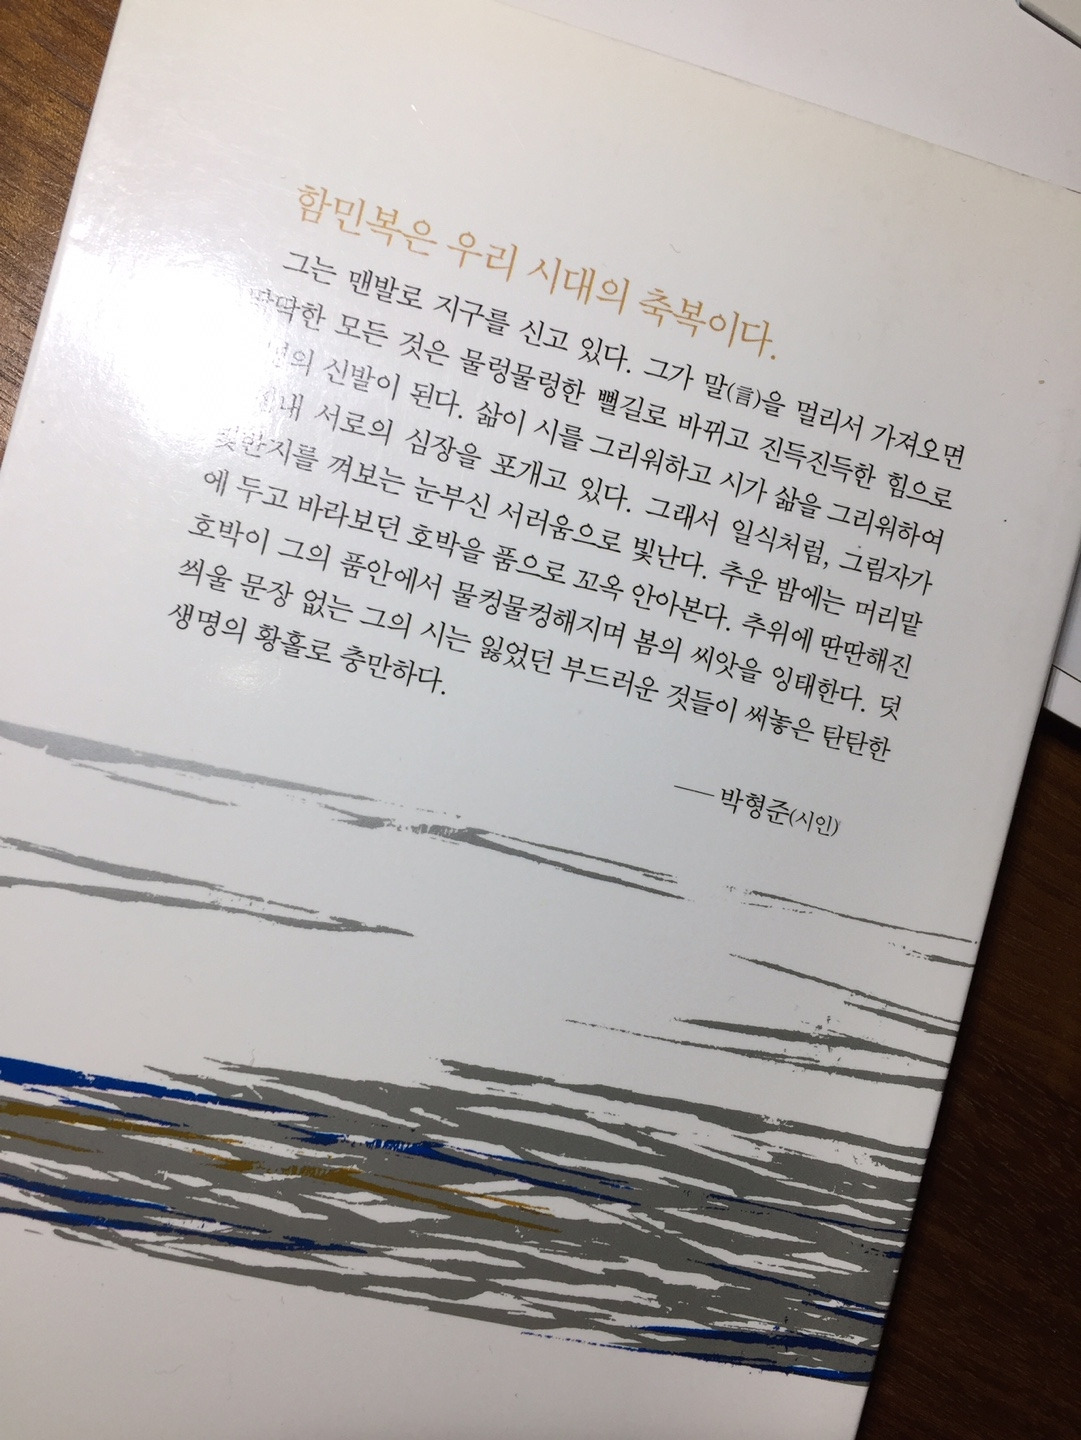 함민복은 우리 시대의 축복이다.
그는 맨발로 지구를 신고 있다. 그가 말(言)을 멀리서 가져오면
딱딱한 모든 것은 물렁물렁한 뻘길로 바뀌고 진득진득한 힘으로
신발이 된다. 삶이 시를 그리워하고 시가 삶을 그리워하여
서로의 심장을 포개고 있다. 그래서 일식처럼, 그림자가
빛한지를 껴보는 눈부신 서러움으로 빛난다. 추운 밤에는 머리맡
에 두고 바라보던 호박을 품으로 꼬옥 안아본다. 추위에 딴딴해진
호박이 그의 품안에서 물컹물컹해지며 봄의 씨앗을 잉태한다. 덧
씌울 문장 없는 그의 시는 잃었던 부드러운 것들이 써놓은 탄탄한
생명의 황홀로 충만하다.
── 박형준(시인)